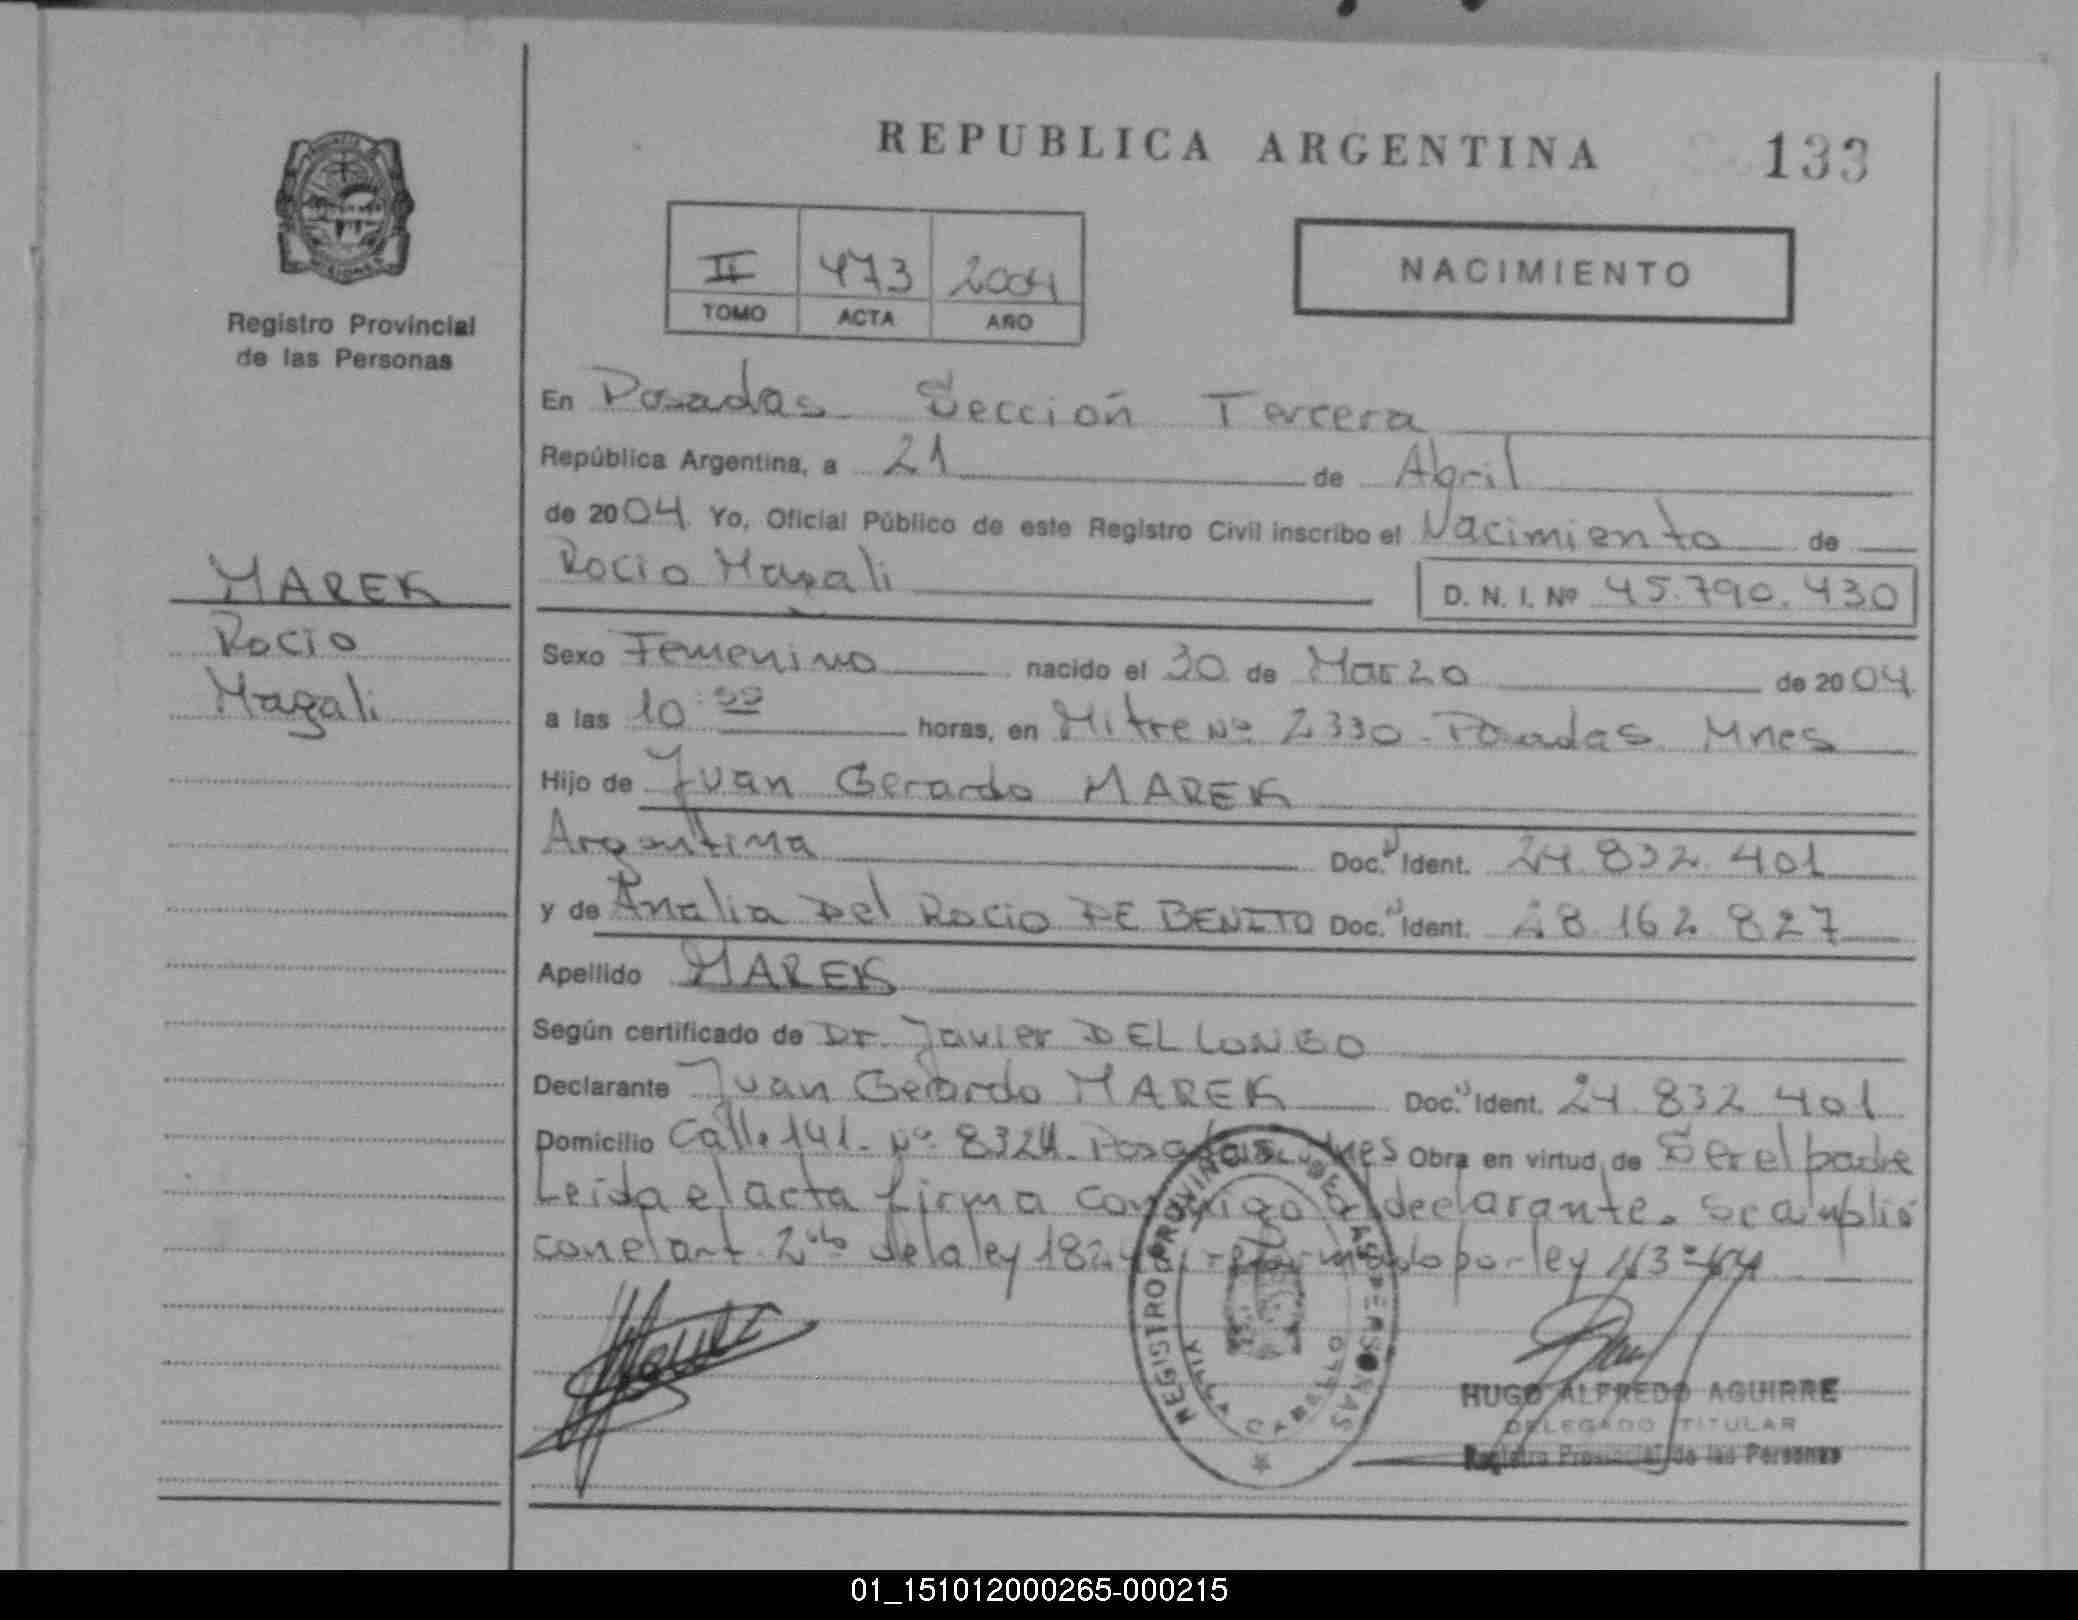 REPUBLICA ARGENTINA 133
II 473 2004
TOMO ACTA AÑO
NACIMIENTO
Registro Provincial
de las Personas
MAREK
Rocio
Magali
En Posadas Sección Tercera
República Argentina, a 21 de Abril
de 2004 Yo, Oficial Público de este Registro Civil inscribo el Nacimiento de
Rocio Magali D. N. I. Nº 45.790.430
Sexo Femenino nacido el 30 de Marzo de 2004
a las 10 horas, en Mitre Nº 2330 - Posadas Mnes
Hijo de Juan Gerardo MAREK
Argentina Doc. Ident. 24.832.401
y de Analia Del Rocio DE BENITO Doc. Ident. 28.162.827
Apellido MAREK
Según certificado de Dr. Javier DEL LONGO
Declarante Juan Gerardo MAREK Doc. Ident. 24.832.401
Domicilio Calle 141 - Nº 8324 - Posadas Mnes Obra en virtud de Ser el padre
Leida el acta firma conmigo el declarante. Se amplió
con el art. 2 de la ley por ley
REGISTRO PROVINCIAL DE LAS PERSONAS
HUGO ALFREDO AGUIRRE
DELEGADO TITULAR
Registro Provincial de las Personas
01_151012000265-000215